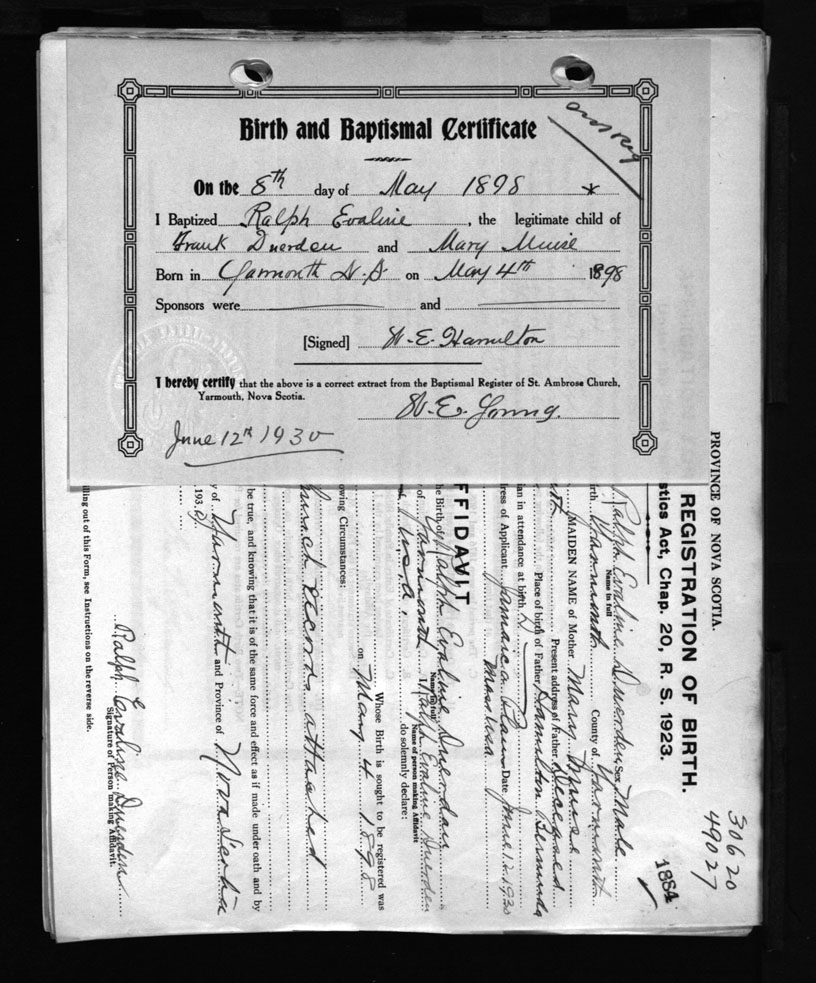 Birth and Baptismal Certificate
On the 8th day of May 1898 *
I Baptized Ralph Evaline, the legitimate child of
Frank Duerden and Mary Muise
Born in Yarmouth N.S. on May 4th 1898
Sponsors were and
[Signed] W. E. Hamilton
I hereby certify that the above is a correct extract from the Baptismal Register of St. Ambrose Church,
Yarmouth, Nova Scotia.
W. E. Young.
June 12th 1930
PROVINCE OF NOVA SCOTIA.
REGISTRATION OF BIRTH.
stics Act, Chap. 20, R. S. 1923.
30620
49027
1884
Ralph Evaline Duerden Sex Male
Name in full
irth Yarmouth County of Yarmouth
MAIDEN NAME of Mother Mary Muise
Present address of Father deceased
Place of birth of Father Hamilton Bermuda
an in attendance at birth
ress of Applicant Jamaica Plain Date June 12 1930
Mass
FFIDAVIT
he Birth of Ralph Evaline Duerden
Name in full
of Yarmouth I Ralph Evaline Duerden
Name of person making Affidavit
do solemnly declare:
Whose Birth is sought to be registered was
on May 4 1898
owing Circumstances:
church records attached
be true, and knowing that it is of the same force and effect as if made under oath and by
y of Yarmouth and Province of Nova Scotia
193
Ralph Evaline Duerden
Signature of Person making Affidavit.
illing out of this Form, see Instructions on the reverse side.